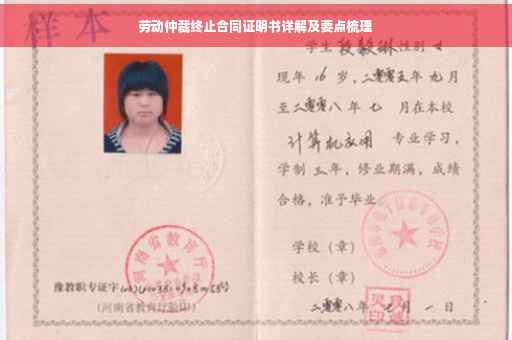 劳动仲裁终止合同证明书详解及要点梳理
样本
学生段毅琳性别女
现年16岁,二零零五年九月
至二零零八年七月在本校
计算机应用 专业学习,
学制三年,修业期满,成绩
合格,准予毕业
学校(章)
校长(章)
二零零八年七月一日
河南省教育厅
豫教职专证字
(河南省教育厅验印)